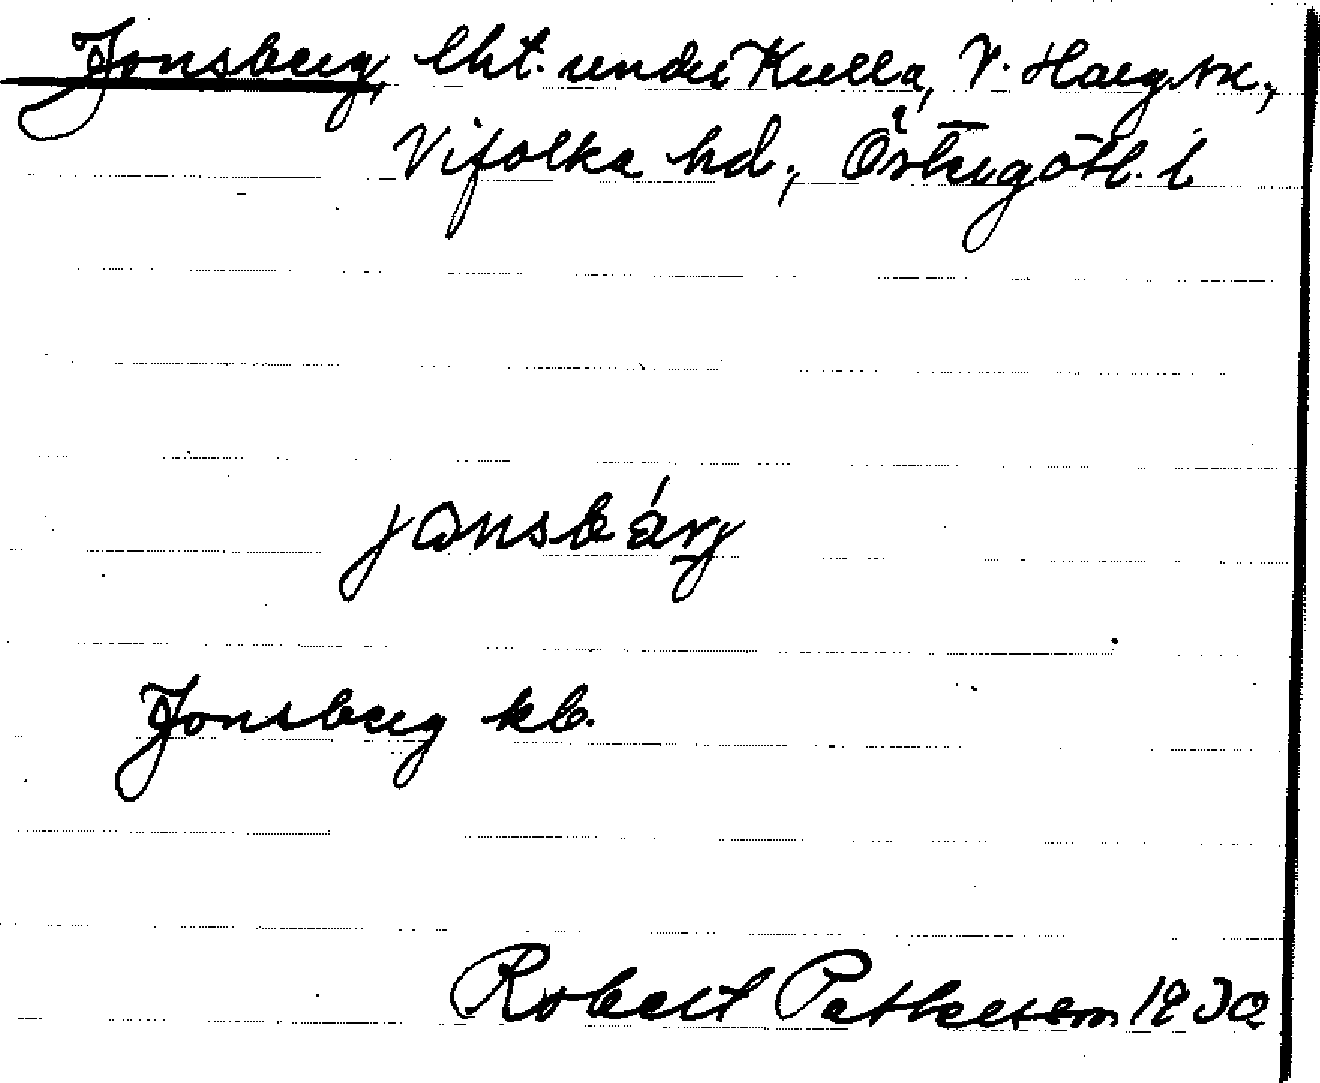 Jonsberg, lht. under Kulla, V. Harg sn,
Vifolka hd., Östergötl. l
jonsbárj
Jonsberg kb.
Robert Pettersson 1930